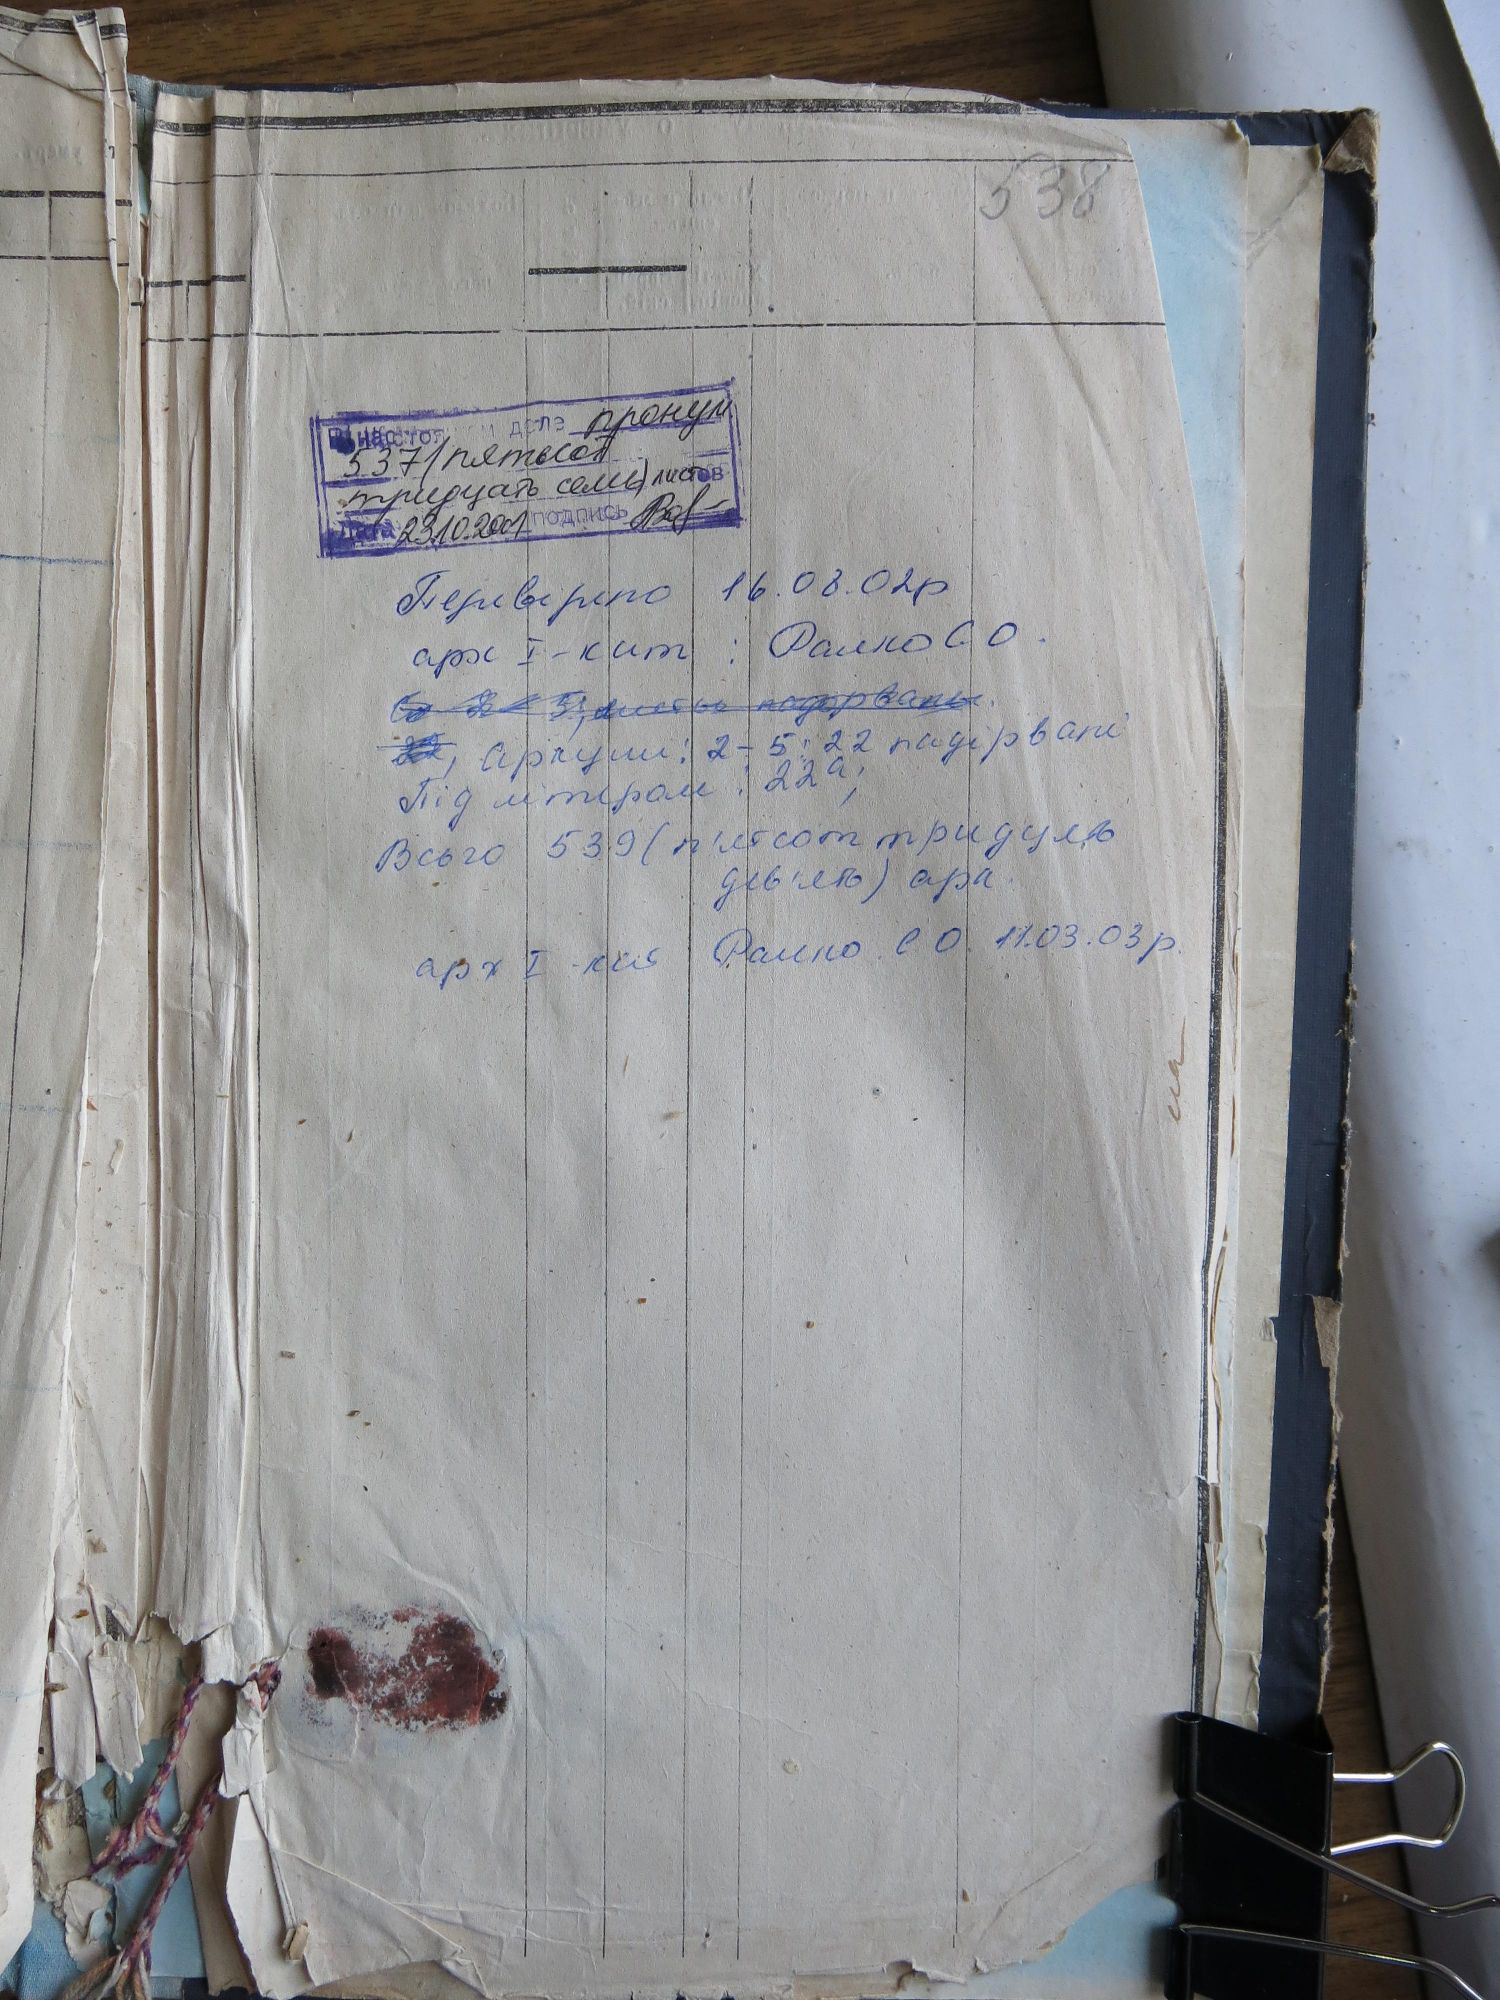 538
В настоящем деле пронум
537 (пятьсот
тридцать семь) листов
Дата 23.10.2001 подпись
Перевірено 16.08.02р
арх І-кат : Рамко С О.
Аркуші: 2-5; 22 надірвані
Під літерам : 22а;
Всього 539 (п'ятсот тридцять
дев'ять) арк.
арх І-кат Рамко С О. 11.03.03р.